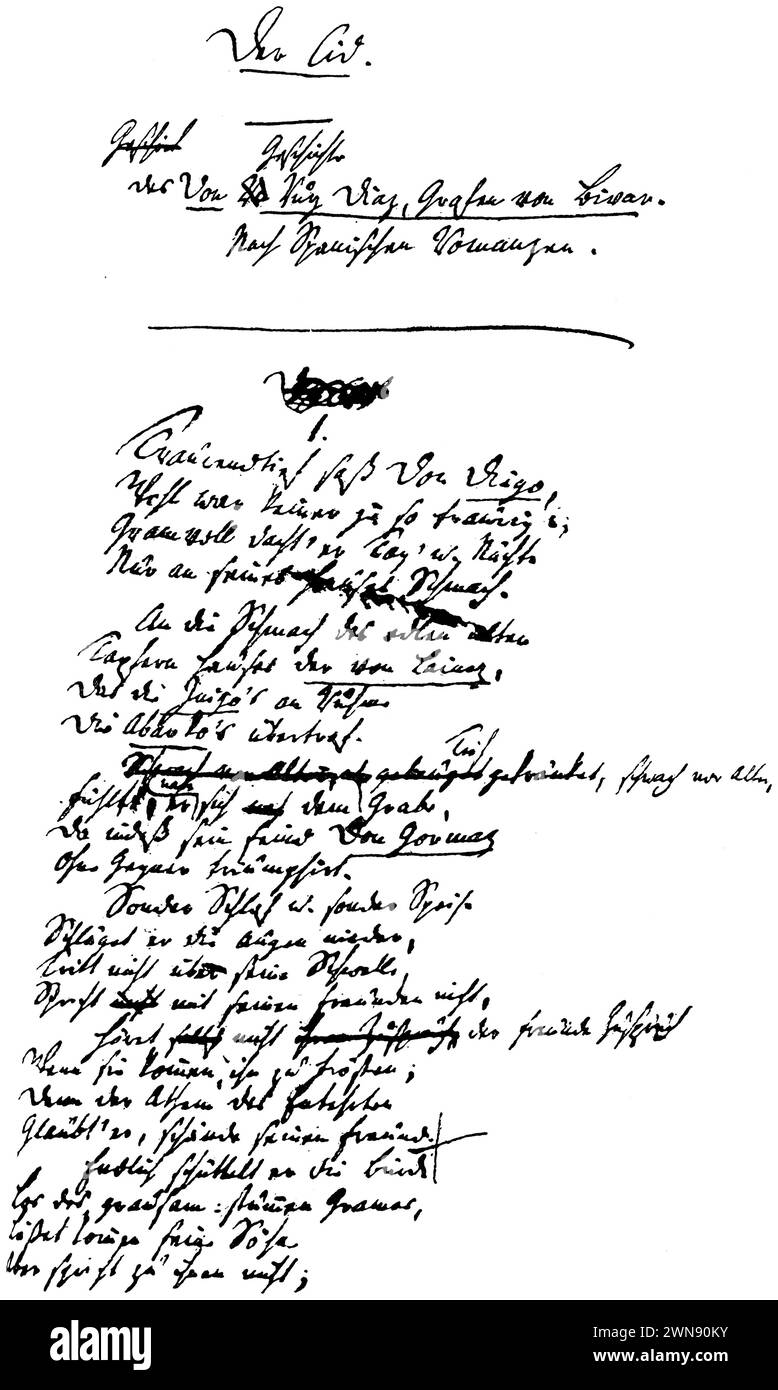 Der Cid.
Geschicht
Geschichte
des Don Ruy Diaz, Grafen von Bivar.
Nach Spanischen Romanzen.
1.
Traurendtief saß Don Diego,
Wohl war keiner je so traurig;
Gramvoll dacht' er Tag' u. Nächte
Nur an seines Hauses Schmach.
An die Schmach des edlen alten
Tapfern Hauses der von Lainez,
Das die Inigo's an Ruhme
Die Abarko's übertraf.
Tief
Schwach vor Alter, gekränket, schwach vor Alter,
nah
Fühlt er sich dem Grabe,
Da indeß sein Feind Don Gormaz
Ohne Gegner triumphirt.
Sonder Schlaf u. sonder Speise
Schläget er die Augen nieder,
Tritt nicht über seine Schwelle,
Spricht mit seinen Freunden nicht,
Höret nicht der Freunde Zuspruch
Wenn sie kommen, ihn zu trösten;
Denn der Athem des Entehrten
Glaubt' er, schände seinen Freund.
Endlich schüttelt er die Bürde
Los des grausam-stummen Grames,
Lässet kommen seine Söhne
Aber spricht zu ihnen nicht;
alamy
Image ID: 2WN90KY
www.alamy.com